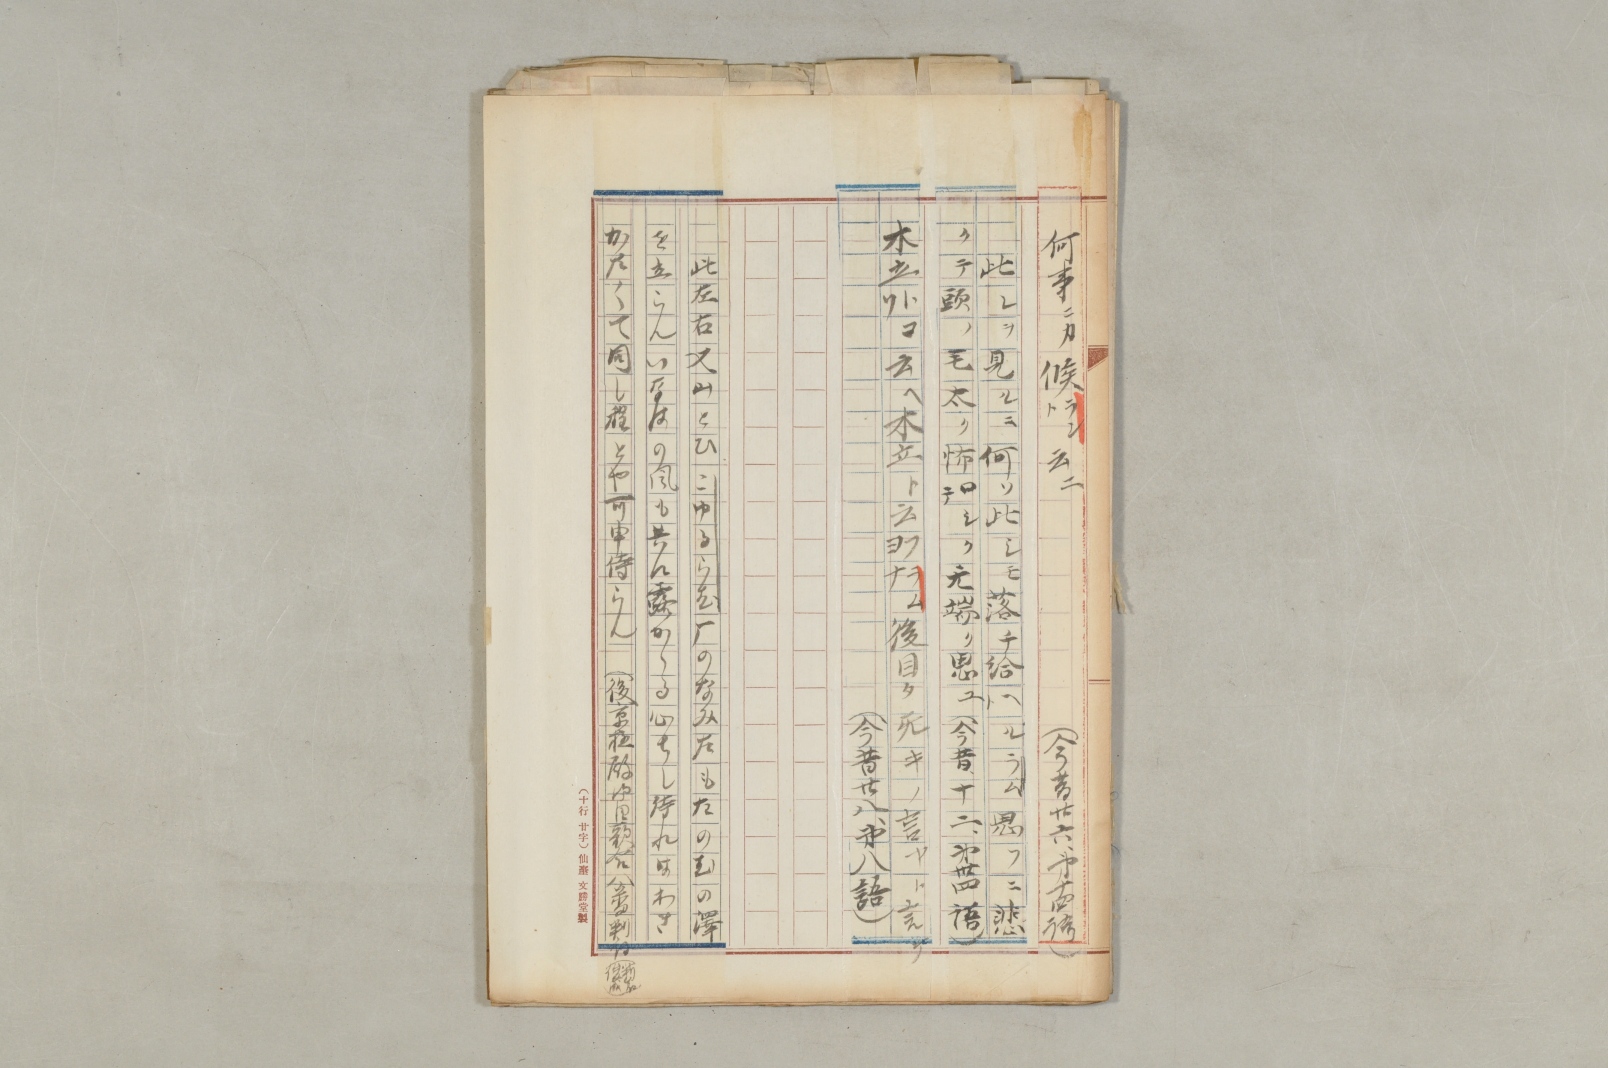 何事ニカ候ラント云ニ （今昔廿六、第
此レヲ見ルニ何ソ此シモ落チ給ヘルラム思フニ悲
クテ頭ノ毛太リ怖ロシクテ 思ユ（今昔十二、第卅四語）
木立リトコ云ヘ木立ト云ヨフナラム後目タ死キノ言ヤト言
（今昔廿八、第八語）
此左右又山とひこゆるらむ のなみたもたのむの澤
を立らんいなはの風も共に露かゝる心ちし侍れはわき
かたくて同し程とや可申侍らん （後京極殿御自歌合八番判
（十行 廿字）仙臺 文勝堂製